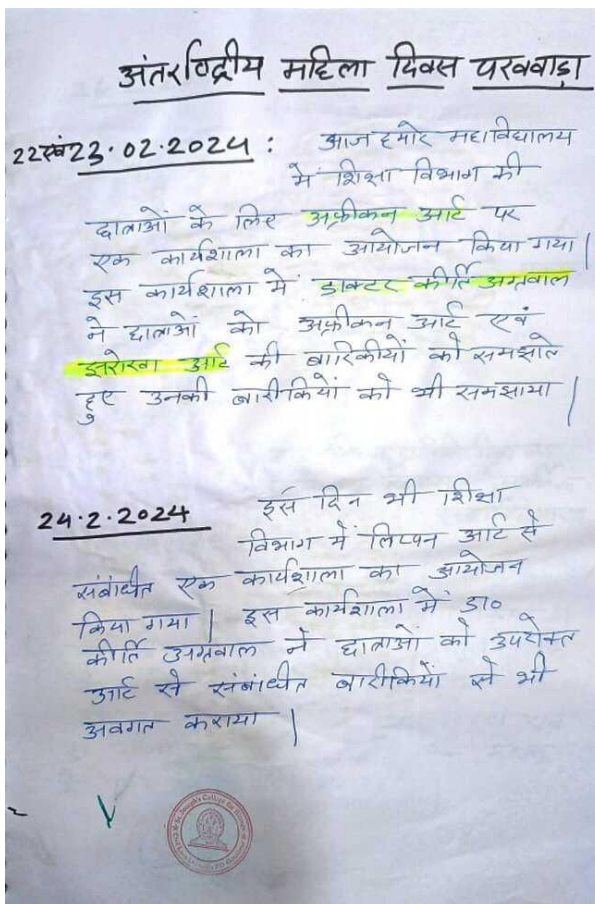 अंतरराष्ट्रीय महिला दिवस परववाड़ा
22एवं23.02.2024 : आज हमारे महाविद्यालय
में शिक्षा विभाग की
छात्राओं के लिए अफ्रीकन आर्ट पर
एक कार्यशाला का आयोजन किया गया |
इस कार्यशाला में डाक्टर कीर्ति अग्रवाल
ने छात्राओं को अफ्रीकन आर्ट एवं
झरोखा आर्ट की बारिकीयों को समझाते
हुए उनकी बारीकियों को भी समझाया |
24.2.2024 इस दिन भी शिक्षा
विभाग में लिप्पन आर्ट से
संबंधित एक कार्यशाला का आयोजन
किया गया | इस कार्यशाला में डा०
कीर्ति अग्रवाल ने छात्राओं को उपरोक्त
आर्ट से संबंधित बारीकियों से भी
अवगत कराया |
St. Joseph's College for Women